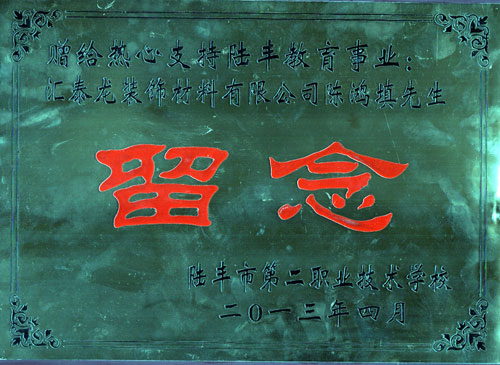 赠给热心支持陆丰教育事业：
汇泰龙装饰材料有限公司陈鸿填先生
留念
陆丰市第二职业技术学校
二〇一三年四月